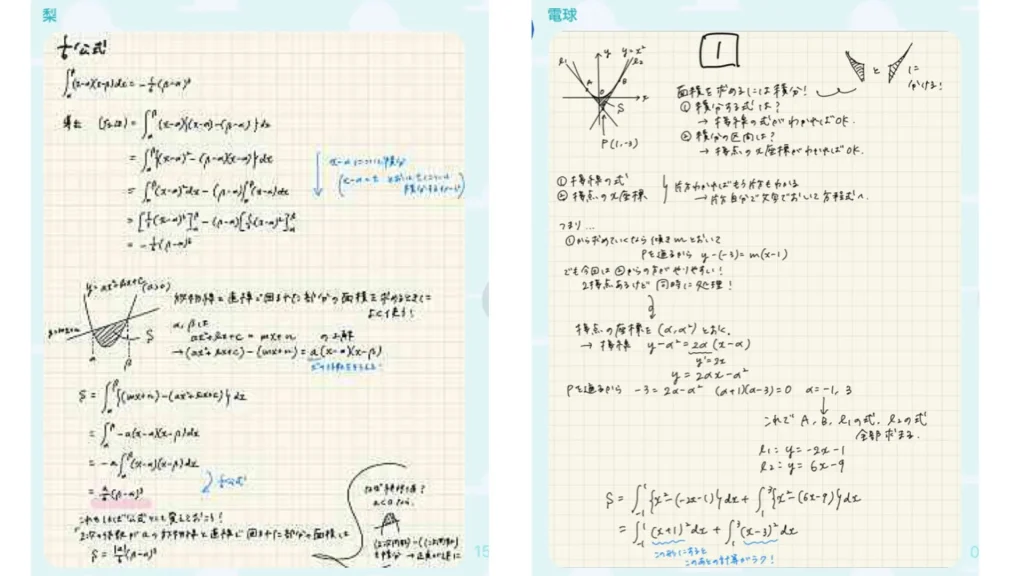 梨
1/6公式!
∫_α^β (x-α)(x-β)dx = -1/6(β-α)³
導出 (左辺) = ∫_α^β (x-α){(x-α)-(β-α)}dx
= ∫_α^β {(x-α)²-(β-α)(x-α)}dx
= ∫_α^β (x-α)²dx-(β-α)∫_α^β (x-α)dx
= [1/3(x-α)³]_α^β-(β-α)[1/2(x-α)²]_α^β
= -1/6(β-α)³
x-αについて積分
y=ax²+bx+c (a>0)
y=mx+n
S
α
β
放物線と直線で囲まれた部分の面積を求めるときに
よく使う!
α, βは
ax²+bx+c = mx+n の2解
→(ax²+bx+c)-(mx+n) = a(x-α)(x-β)
S = ∫_α^β {(mx+n)-(ax²+bx+c)}dx
= ∫_α^β -a(x-α)(x-β)dx
= -a∫_α^β (x-α)(x-β)dx
1/6公式
= a/6(β-α)³
2次の係数がaの放物線と直線で囲まれた部分の面積は
S = |a|/6(β-α)³
なぜ絶対値?
a<0なら、
15
電球
1
y
y=x²
l₁
l₂
A
B
x
S
P(1,-3)
と
に
分ける!
面積を求めるには積分!
① 積分する式は?
→ 接線の式がわかればOK.
② 積分の区間は?
→ 接点のx座標がわかればOK.
① 接線の式
② 接点のx座標
片方わかればもう片方もわかる
→ 片方自分で文字でおいて方程式へ.
つまり…
①から求めていくなら 傾きmとおいて
Pを通るから y-(-3)=m(x-1)
でも今回は②からの方がやりやすい!
2接点あるけど同時に処理!
接点の座標を(α,α²)とおく.
→ 接線 y-α²=2α(x-α)
y'=2x
y=2αx-α²
Pを通るから -3=2α-α² (α+1)(α-3)=0 α=-1, 3
これで A, B, l₁の式, l₂の式
全部求まる.
l₁: y=-2x-1
l₂: y=6x-9
S = ∫_-1^1 {x²-(-2x-1)}dx + ∫_1^3 {x²-(6x-9)}dx
= ∫_-1^1 (x+1)²dx + ∫_1^3 (x-3)²dx
この形にすると
このあとの計算がラク!
0